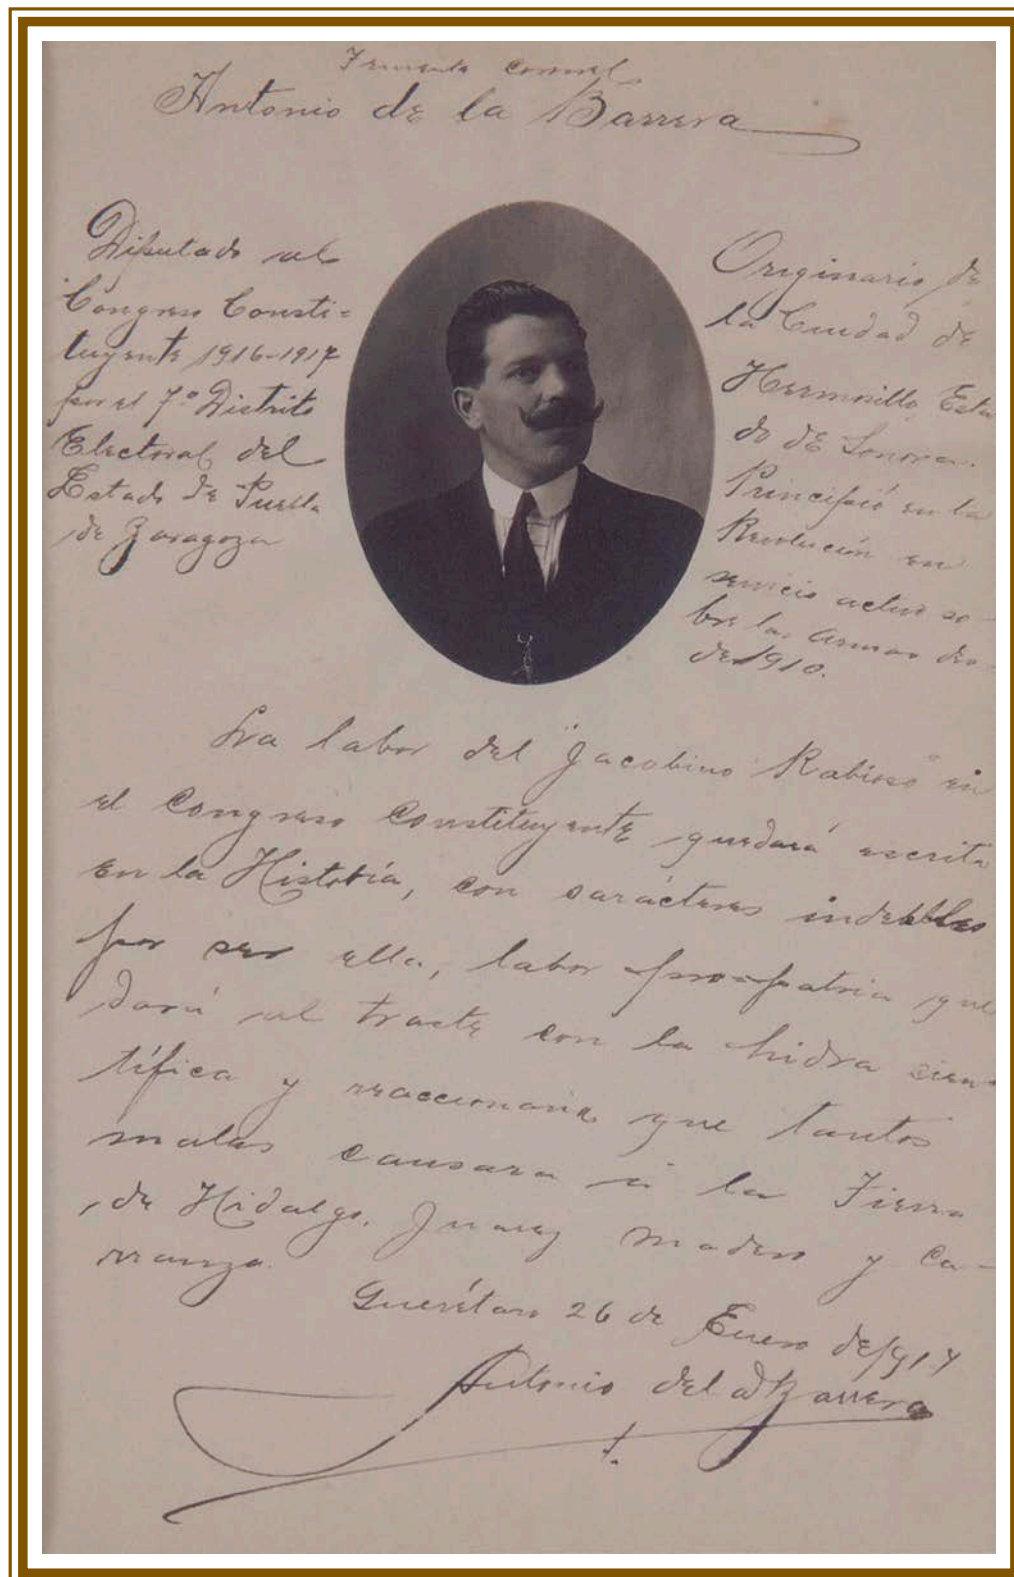 Teniente Coronel
Antonio de la Barrera
Diputado al
Congreso Consti=
tuyente 1916-1917
por el 7º Distrito
Electoral del
Estado de Puebla
de Zaragoza
Originario de
la Ciudad de
Hermosillo, Esta
do de Sonora.
Principió en la
Revolución en
servicio activo so-
bre las armas des-
de 1910.
La labor del "Jacobino Rabioso" en
el Congreso Constituyente quedará escrita
en la Historia, con carácteres indelebles
por ser ella, labor pro-patria que
dará al traste con la hidra cien-
tífica y reaccionaria que tantos
males causara á la Tierra
de Hidalgo, Juarez Madero y Ca-
rranza.
Querétaro 26 de Enero de 1917
Antonio de la Barrera